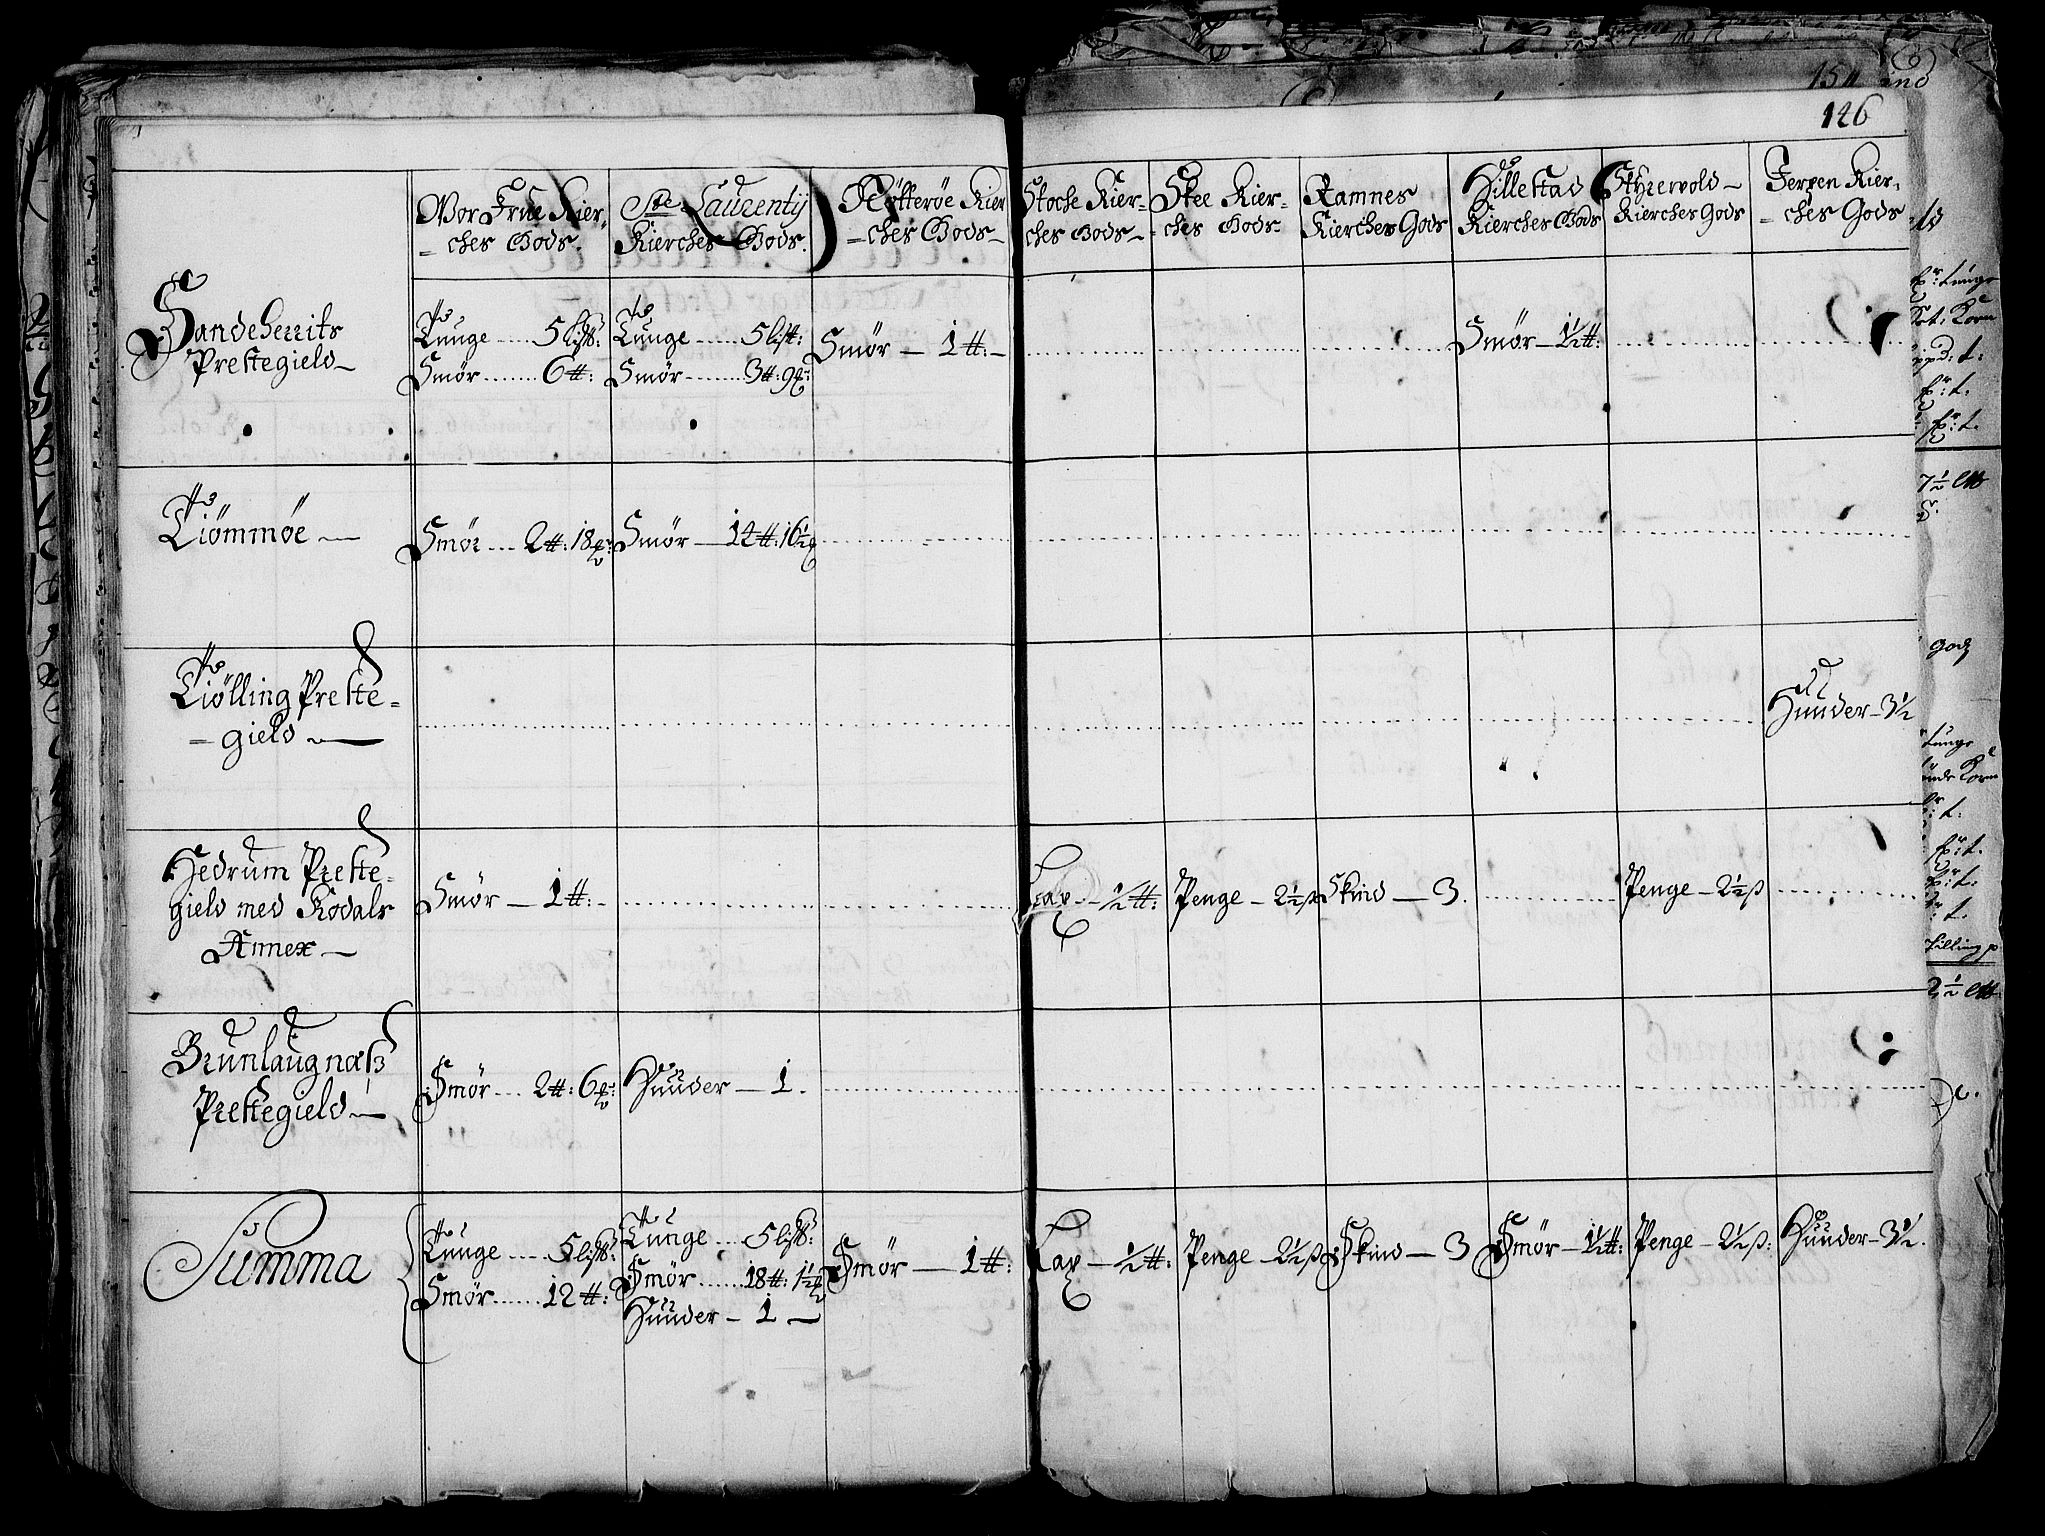 126
Vor Frue Kier-
=ches Gods.
Ste Laurentij
Kierches Gods.
Nøtterøe Kier
=ches Gods
Stoche Kier-
ches Gods
Skee Kier-
ches Gods
Ramnes
Kierches Gods
Hillestad
Kierches Gods
Styrevold
Kierches Gods
Kier-
=ches Gods
Sandeherrits
Prestegield
Tunge 5 lispt:
Smør 6 ℔:
Tunge 5 lispt:
Smør 3 ℔: 9
Smør 1 ℔:
Smør 1½ ℔:
Tiømmøe
Smør 2 ℔: 18
Smør 14 ℔: 16½
Tiølling Preste-
=gield
Huuder 3½
Hedrum Preste-
gield med Kodals
Annex
Smør 1 ℔:
Lax ½ ℔:
Penge 2½ ß
Skind 3.
Penge 2½ ß
Brunlaugnæß
Prestegield
Smør 2 ℔: 6
Huuder 1.
Summa
Tunge 5 lispt:
Smør 12 ℔:
Tunge 5 lispt:
Smør 18 ℔: 1½
Huuder 1
Smør 1 ℔:
Lax ½ ℔:
Penge 2½ ß
Skind 3
Smør 1½ ℔:
Penge 2½ ß:
Huuder 3½.